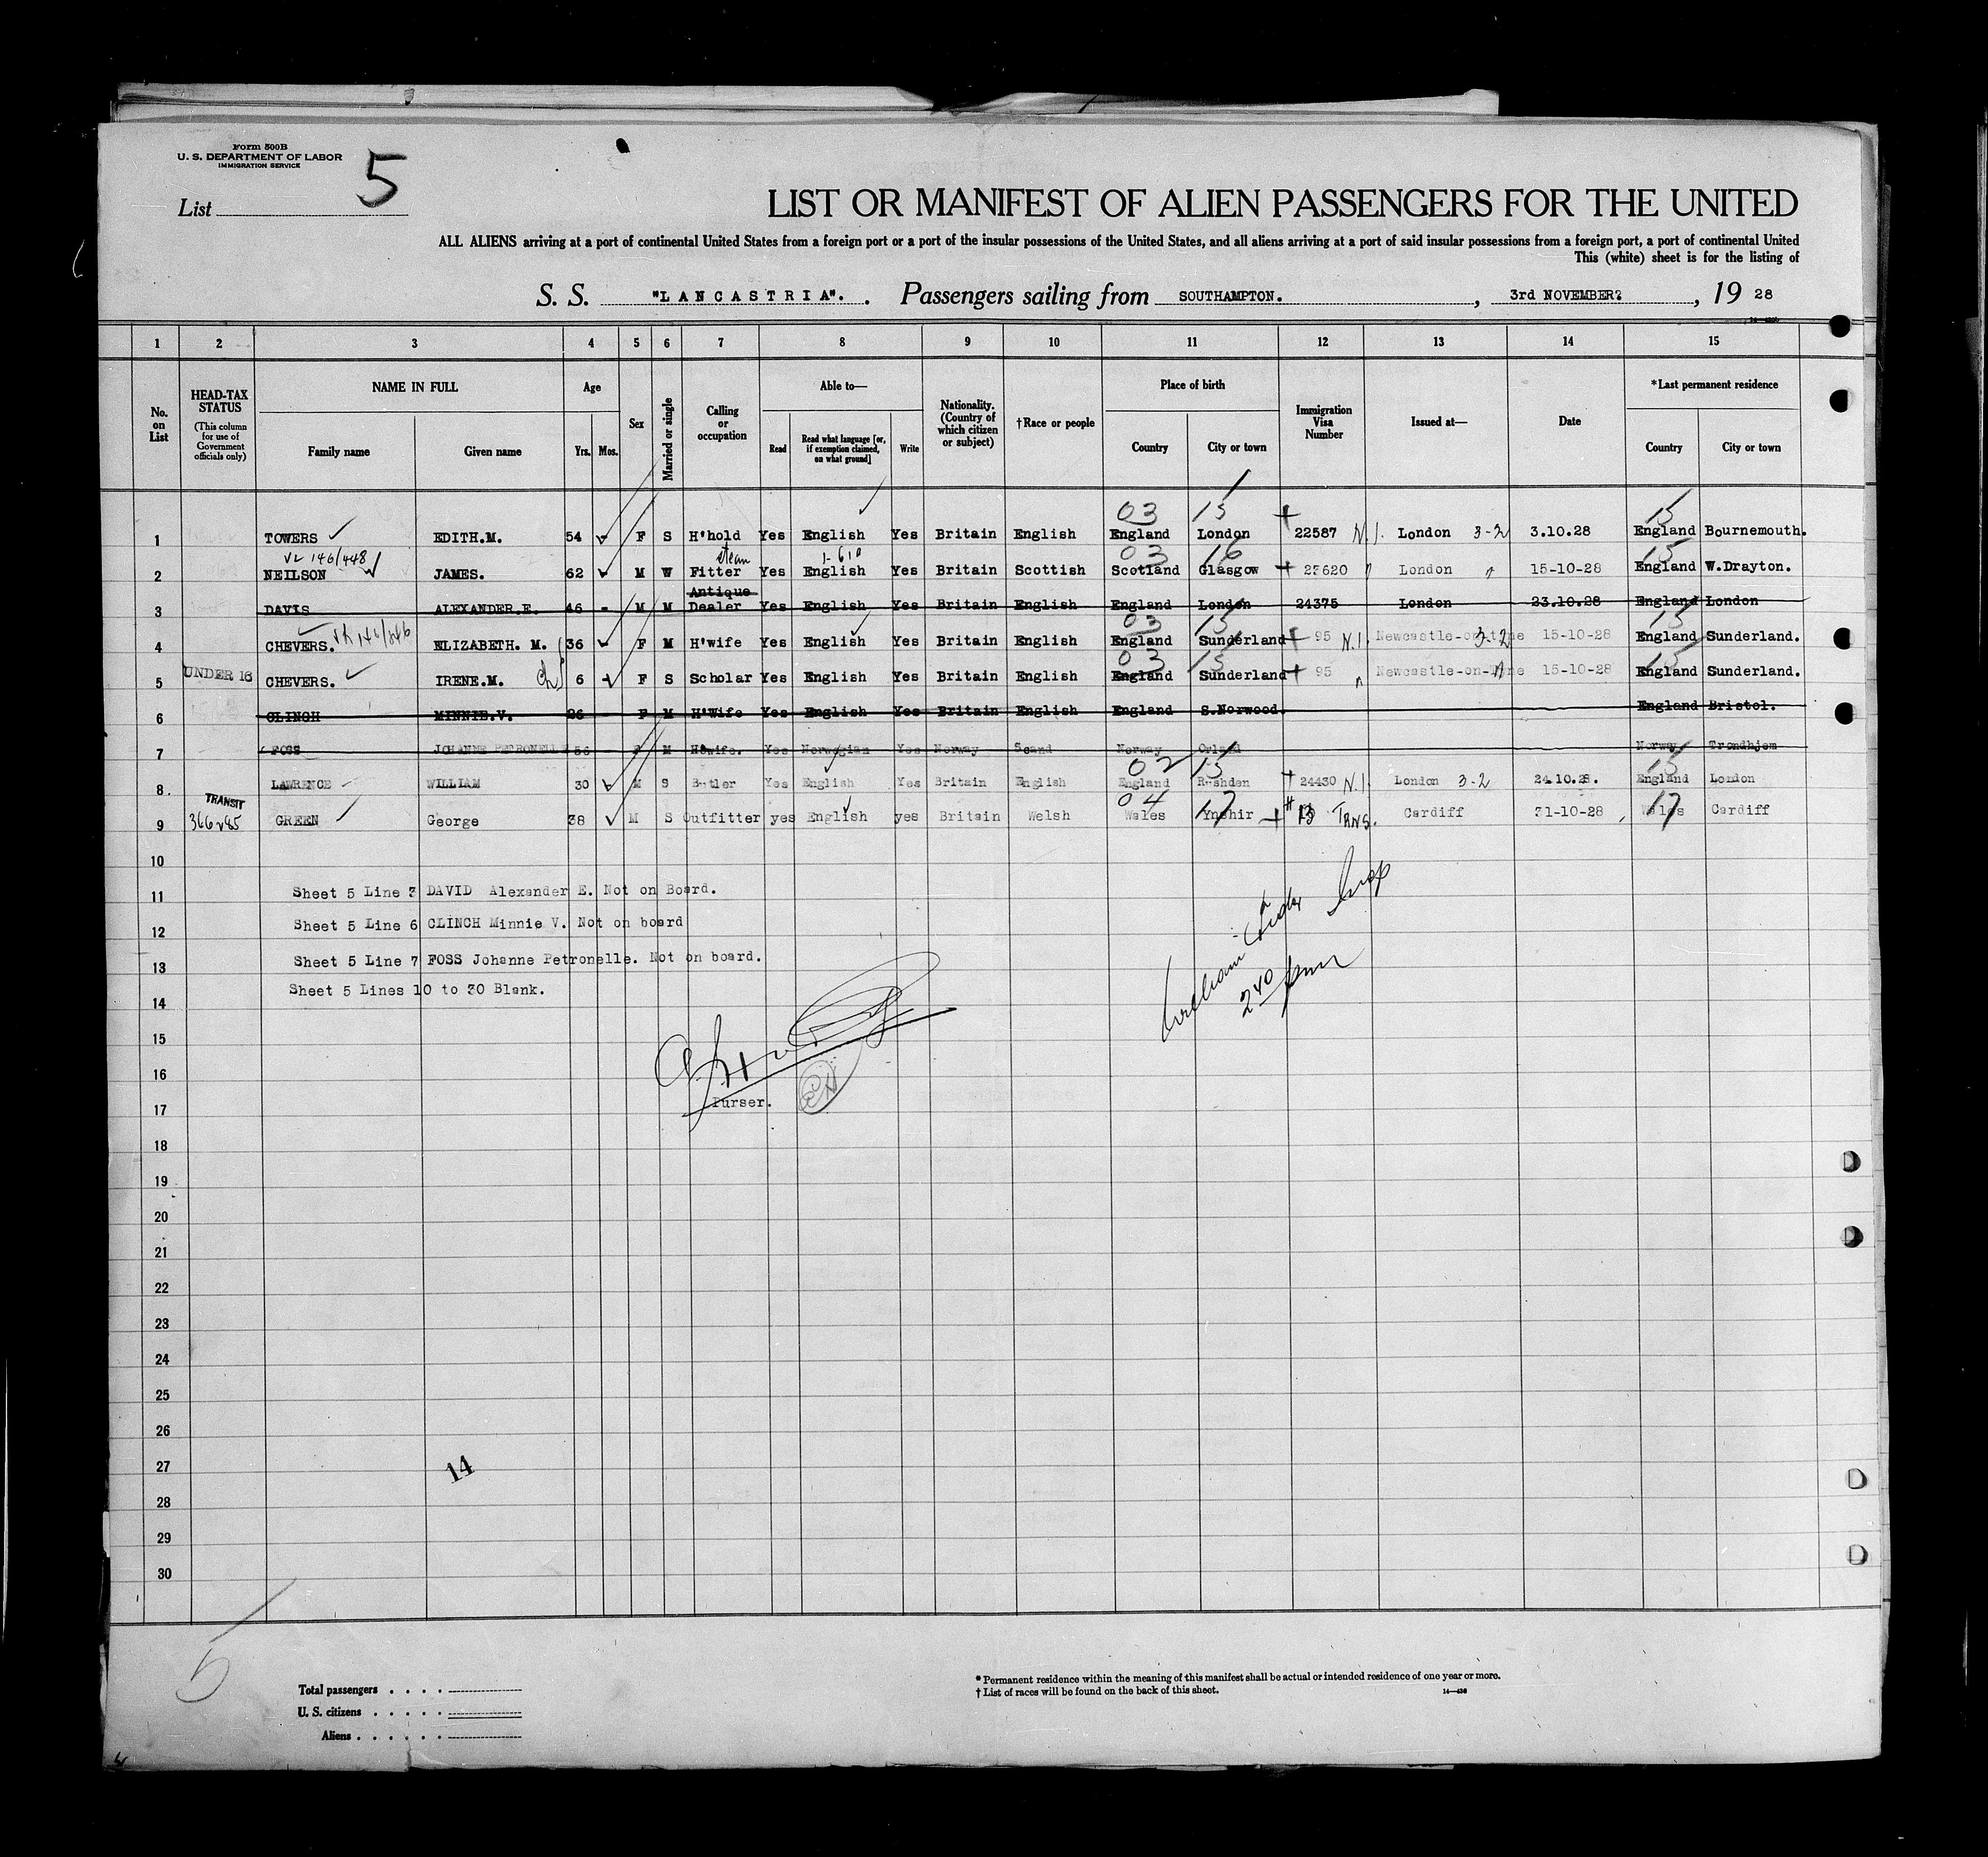 Form 500B
U. S. DEPARTMENT OF LABOR
IMMIGRATION SERVICE
List 5
LIST OR MANIFEST OF ALIEN PASSENGERS FOR THE UNITED
ALL ALIENS arriving at a port of continental United States from a foreign port or a port of the insular possessions of the United States, and all aliens arriving at a port of said insular possessions from a foreign port, a port of continental United
This (white) sheet is for the listing of
S. S. "LANCASTRIA". Passengers sailing from SOUTHAMPTON. , 3rd NOVEMBER? , 19 28
1 2 3 4 5 6 7 8 9 10 11 12 13 14 15
No. on List HEAD-TAX STATUS (This column for use of Government officials only) NAME IN FULL Family name Given name Age Yrs. Mos. Sex Married or single Calling or occupation Able to— Read Read what language [or, if exemption claimed, on what ground] Write Nationality. (Country of which citizen or subject) †Race or people Place of birth Country City or town Immigration Visa Number Issued at— Date *Last permanent residence Country City or town
03 15 15
1 TOWERS EDITH.M. 54 - F S H'hold Yes English Yes Britain English England London 22587 N.I. London 3-2 3.10.28 England Bournemouth.
VL 146/448 steam 1-610 03 16 15
2 NEILSON JAMES. 62 - M W Fitter Yes English Yes Britain Scottish Scotland Glasgow 23620 " London " 15-10-28 England W.Drayton.
Antique
3 DAVIS ALEXANDER.E. 46 - M M Dealer Yes English Yes Britain English England London 24375 London 23.10.28 England London
03 15 15
4 CHEVERS. ELIZABETH. M. 36 - F M H'wife Yes English Yes Britain English England Sunderland 95 N.I. Newcastle-on-tyne 3-2 15-10-28 England Sunderland.
UNDER 16 03 15 15
5 CHEVERS. IRENE.M. ch 6 - F S Scholar Yes English Yes Britain English England Sunderland 95 " Newcastle-on-Tyne " 15-10-28 England Sunderland.
6 CLINCH MINNIE.V. 26 F M H'Wife Yes English Yes Britain English England S.Norwood. England Bristol.
7 FOSS JOHANNE PETRONELLE 56 F M H'wife. Yes Norwegian Yes Norway Scand Norway Orland Norway Trondhjem
02 15 15
8. LAWRENCE WILLIAM 30 M S Butler Yes English Yes Britain English England Rushden 24430 N.I. London 3-2 24.10.28. England London
TRANSIT 04 17 17
9 GREEN George 38 M S Outfitter yes English yes Britain Welsh Wales Ynshir # 13 TRNS. Cardiff 31-10-28 Wales Cardiff
10
11 Sheet 5 Line 3 DAVID Alexander E. Not on Board.
12 Sheet 5 Line 6 CLINCH Minnie V. Not on board
13 Sheet 5 Line 7 FOSS Johanne Petronelle. Not on board.
14 Sheet 5 Lines 10 to 30 Blank.
15
16
17 Purser.
18
19
20
21
22
23
24
25
26
27 14
28
29
30
5
Total passengers
U. S. citizens
Aliens
* Permanent residence within the meaning of this manifest shall be actual or intended residence of one year or more.
† List of races will be found on the back of this sheet.